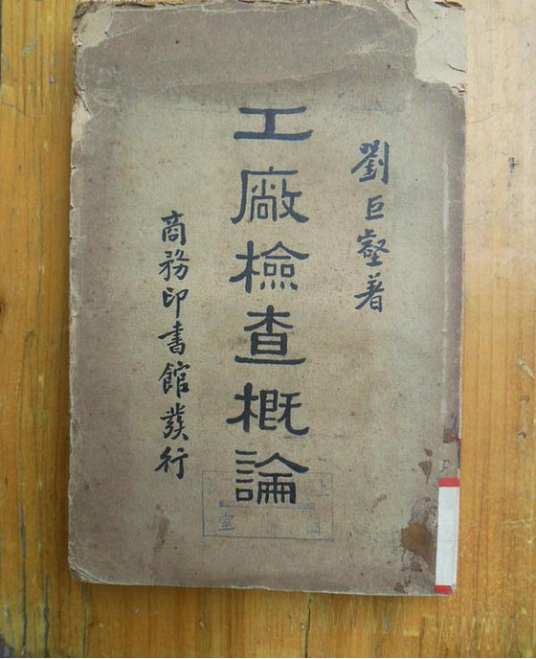 劉巨壑著
工廠檢查概論
商務印書館發行
室